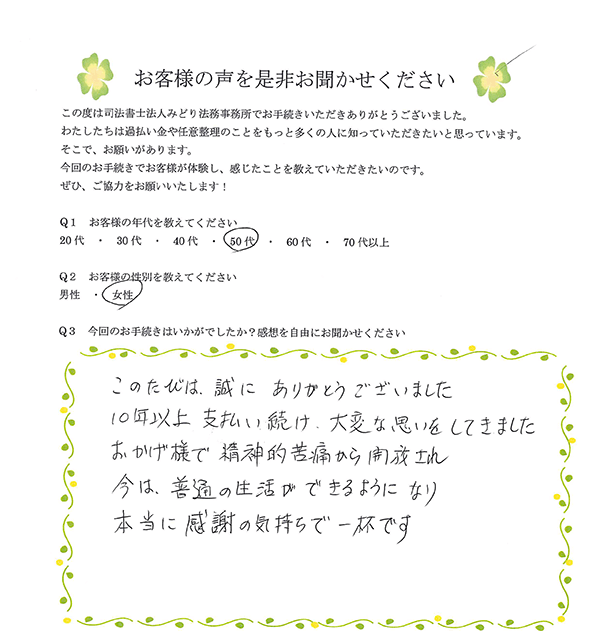 お客様の声を是非お聞かせください
この度は司法書士法人みどり法務事務所でお手続きいただきありがとうございました。
わたしたちは過払い金や任意整理のことをもっと多くの人に知っていただきたいと思っています。
そこで、お願いがあります。
今回のお手続きでお客様が体験し、感じたことを教えていただきたいのです。
ぜひ、ご協力をお願いいたします！
Q1 お客様の年代を教えてください
20代 ・ 30代 ・ 40代 ・ 50代 ・ 60代 ・ 70代以上
Q2 お客様の性別を教えてください
男性 ・ 女性
Q3 今回のお手続きはいかがでしたか？感想を自由にお聞かせください
このたびは、誠に ありがとうございました
10年以上 支払い続け、大変な思いをしてきました
おかげ様で 精神的苦痛から開放され
今は、普通の生活ができるようになり
本当に感謝の気持ちで一杯です